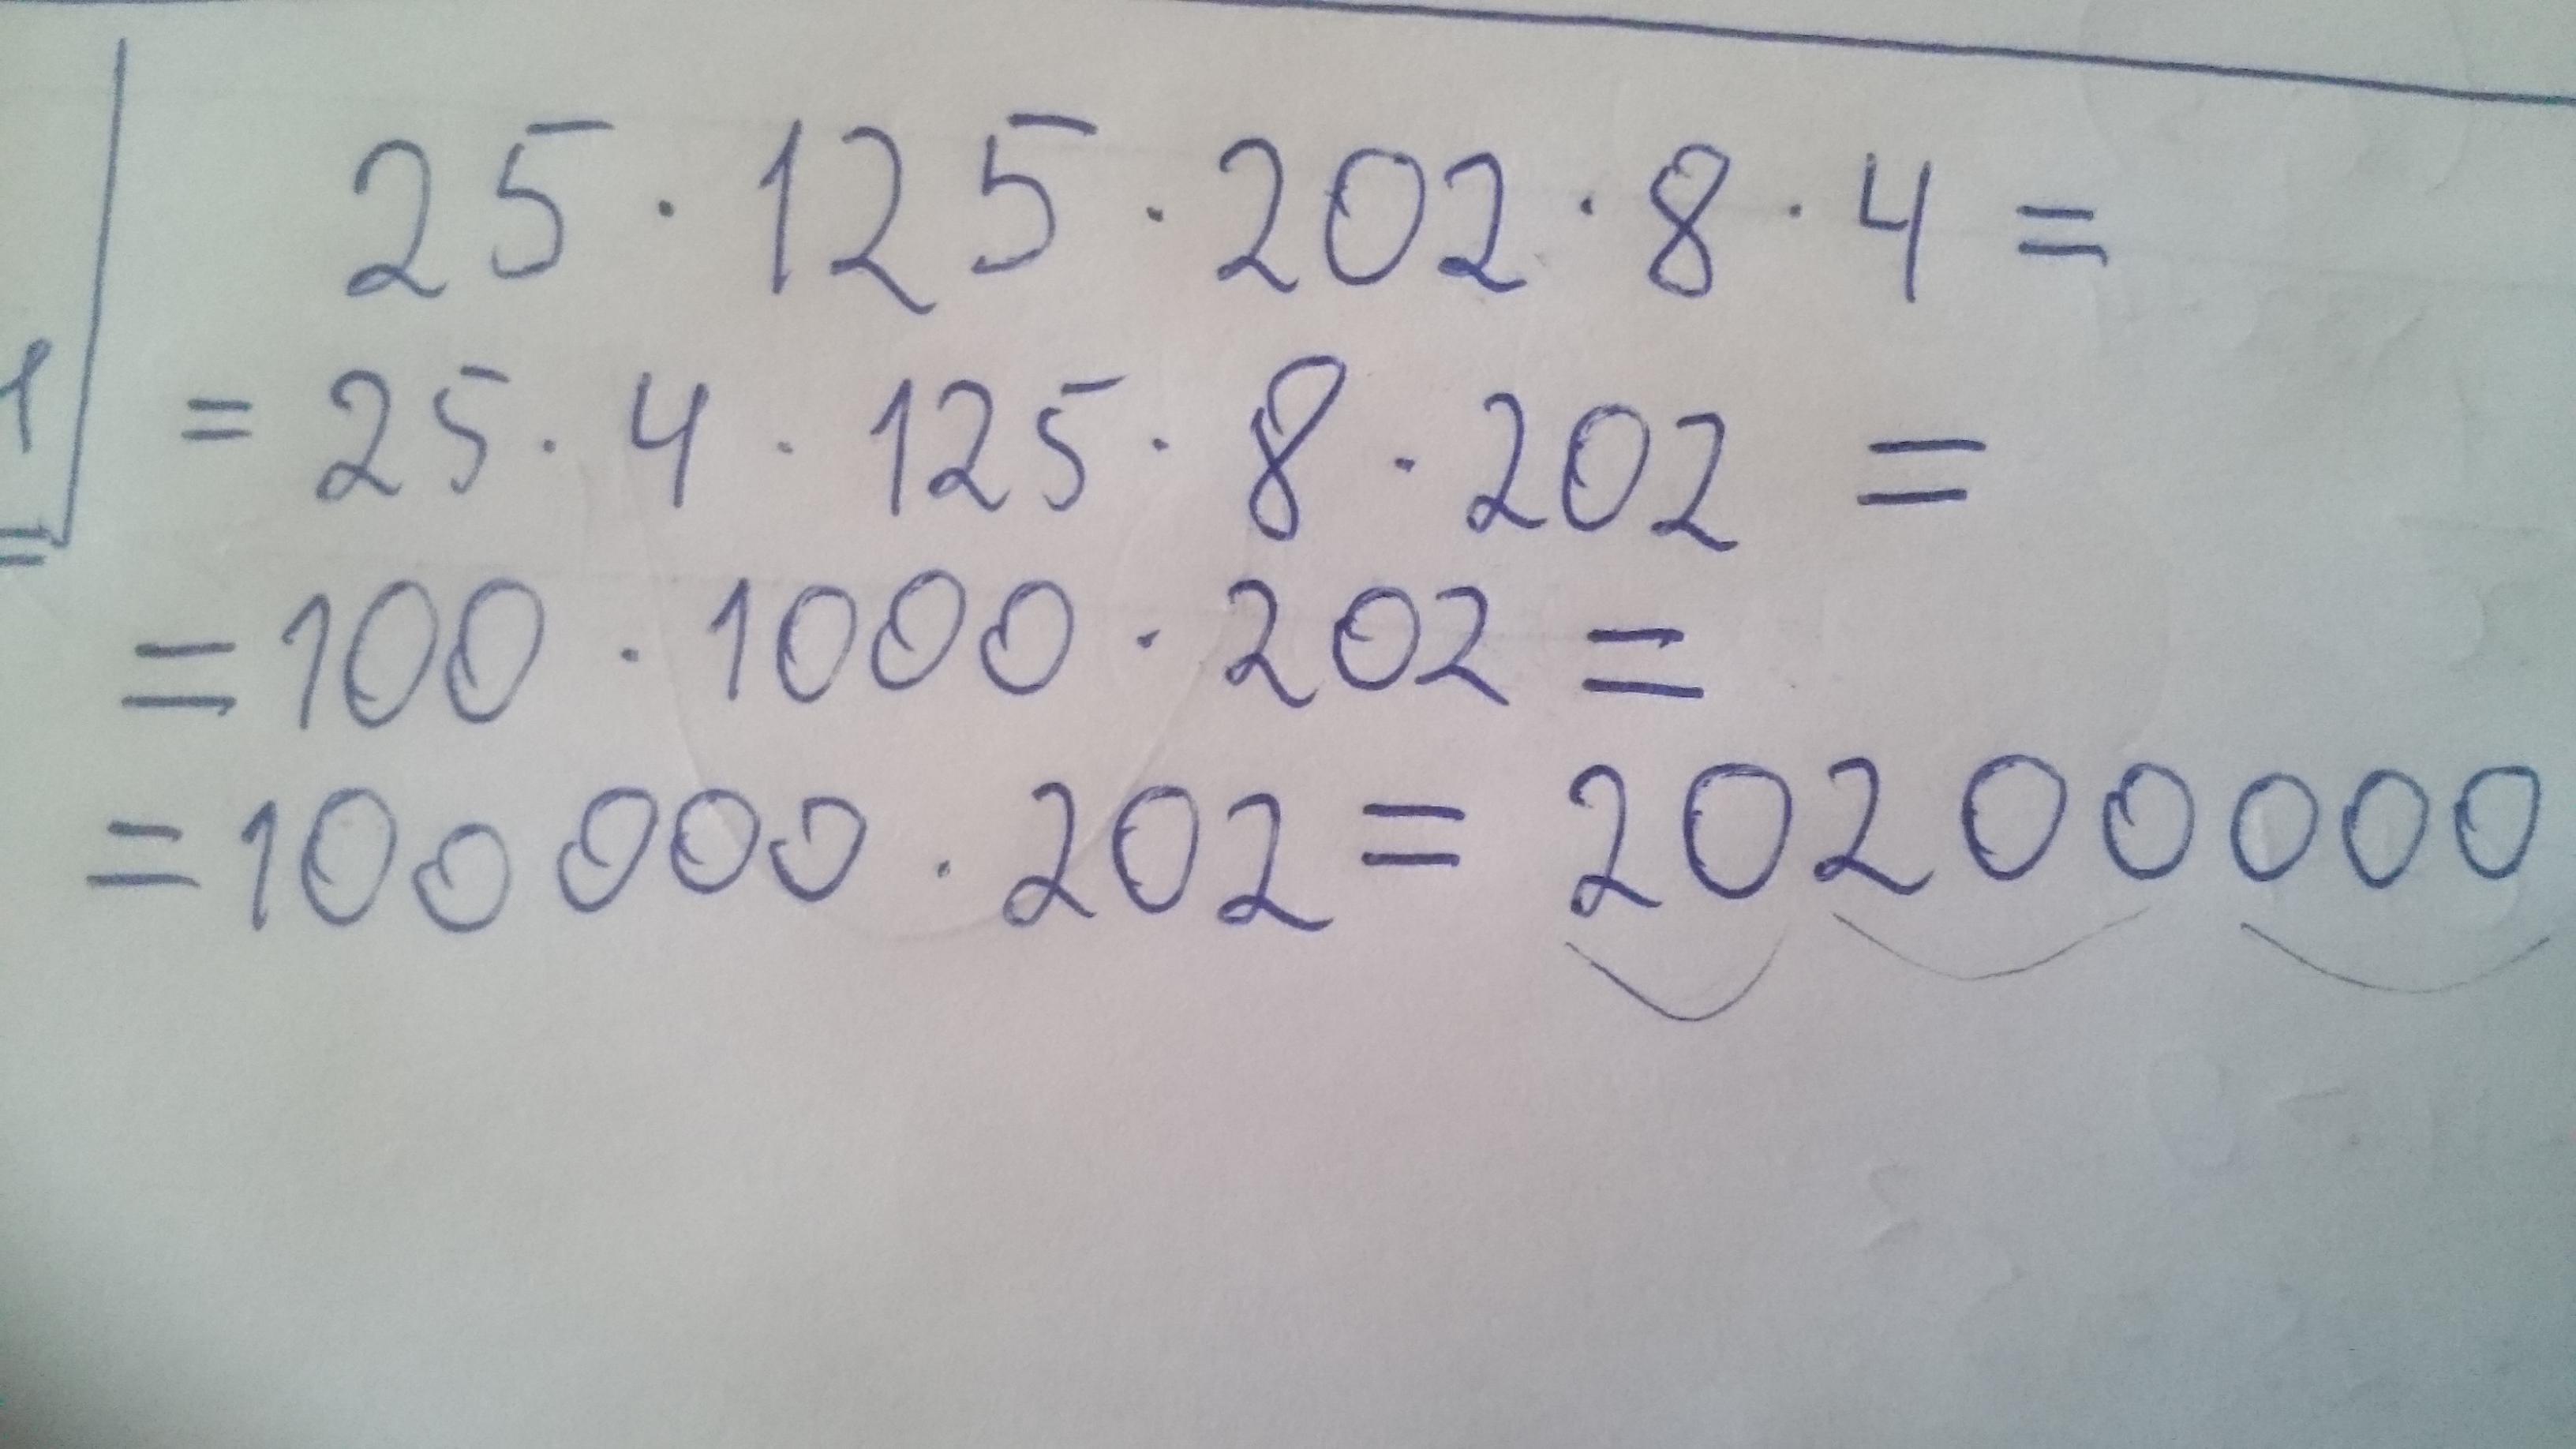 25 · 125 · 202 · 8 · 4 =
1 = 25 · 4 · 125 · 8 · 202 =
= = 100 · 1000 · 202 =
= 100 000 · 202 = 20200000